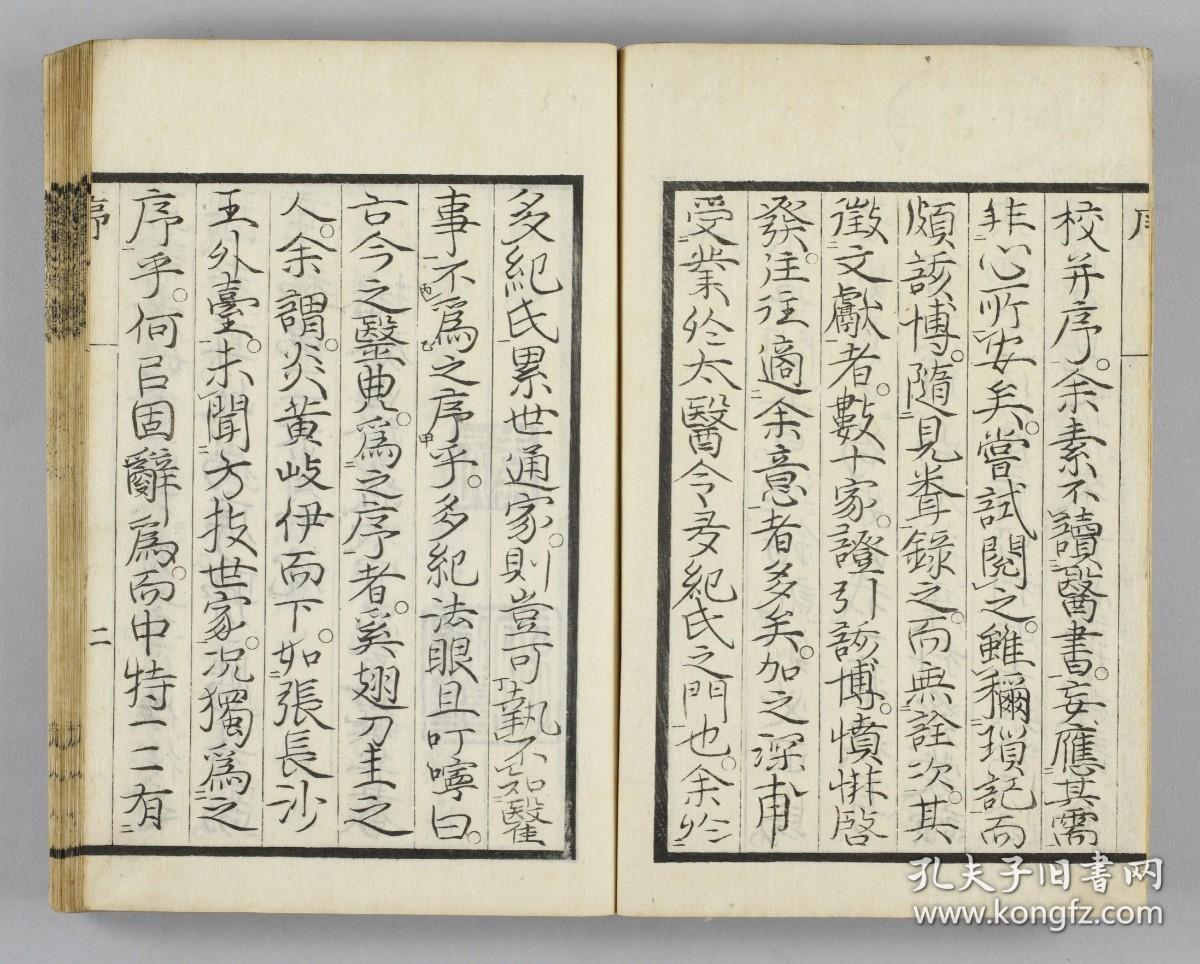 校并序。余素不讀醫書。妄應其需
非心所安矣。嘗試閱之。雖稗瑣記而
頗該博。隨見輯錄之。而無詮次。其
徵文獻者。數十家。證引該博。憤悱啓
發。往往適余意者多矣。加之深甫
受業於太醫令多紀氏之門也。余於
多紀氏累世通家。則豈可執不知醫
事不爲之序乎。多紀法眼且叮嚀曰。
古今之醫典。爲之序者。奚翅刀圭之
人。余謂。炎黃岐伊而下。如張長沙
王外臺。未聞方技世家。況獨爲之
序乎。何㠯固辭爲。而中特一二有
序
二
孔夫子旧书网
www.kongfz.com